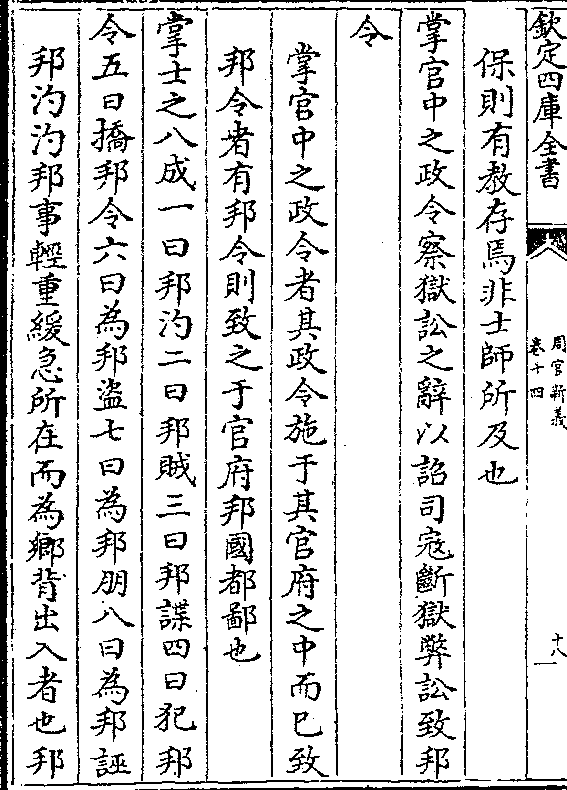 欽定四庫全書
周官新義
卷十四
十八
保則有教存焉非士師所及也
掌官中之政令察獄訟之辭以詔司寇斷獄弊訟致邦
令
掌官中之政令者其政令施于其官府之中而已致
邦令者有邦令則致之于官府邦國都鄙也
掌士之八成一曰邦汋二曰邦賊三曰邦諜四曰犯邦
令五曰撟邦令六曰為邦盜七曰為邦朋八曰為邦誣
邦汋汋邦事輕重緩急所在而為鄉背出入者也邦